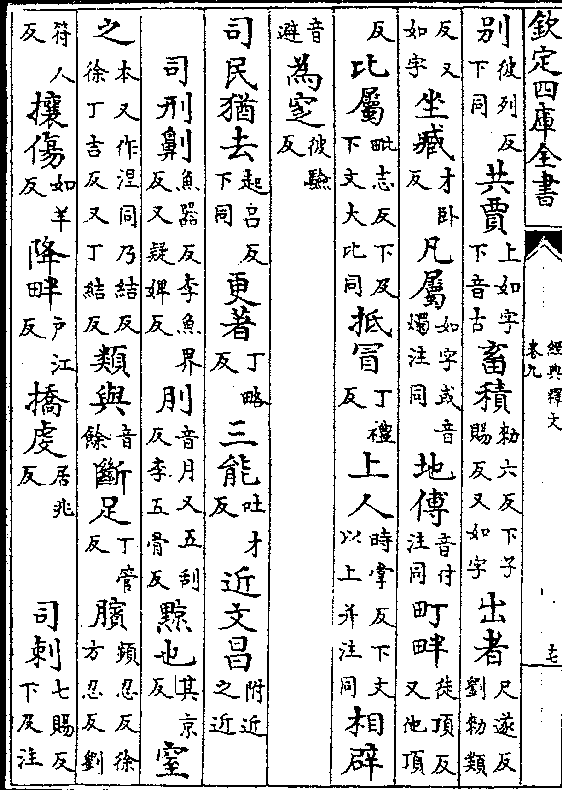 欽定四庫全書 經典釋文 卷九 十七
别彼列反下同共賈上如字下音古畜積勑六反下子賜反又如字出者尺遂反劉勑類
反又如字坐臧才卧反凡屬如字或音燭注同地傅音付注同町畔徒頂反又他頂
反比屬毗志反下及下文大比同抵冒丁禮反上人時掌反下文以上并注同相辟
音避為窆彼驗反
司民猶去起呂反下同更著丁略反三能吐才反近文昌附近之近
司刑劓魚器反李魚界反又疑婢反刖音月又五刮反李五骨反黥也其京反窒
之本又作涅同乃結反徐丁吉反又丁結反類與音餘斷足丁管反臏頻忍反徐方忍反劉
符人反攘傷如羊反降畔户江反撟虔居兆反司刺七賜反下及注